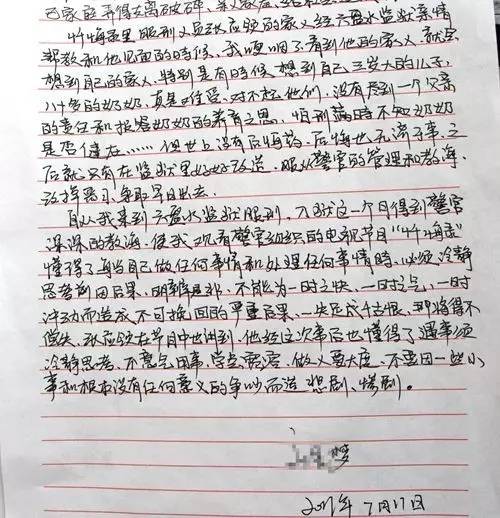 己家庭弄得支离破碎
忏悔录里服刑人员张应领的家人经六盘水监狱亲情
帮教和他见面的时候，我哽咽了看到他的家人，就会
想到自己的家人，特别是有时候想到自己三岁大的儿子，
八十多的奶奶，真是难受，对不起他们，没有尽到一个父亲
的责任和报答奶奶的养育之恩，怕刑满时不知奶奶
是否健在……但世上没有后悔药，后悔也无济于事，之
后就只有在监狱里好好改造，服从警官的管理和教诲，
改掉恶习，争取早日出去。
自从我来到六盘水监狱服刑，入狱这一个月得到警官
深深的教诲，使我观看警官组织的电视节目“忏悔录”
懂得了每当自己做任何事情和处理任何事情时，必须冷静
思考前因后果，明辨是非，不能为一时之快，一时之气，一时
冲动而造成不可挽回的严重后果，一失足成千古恨，那将得不
偿失，张应领在节目中也讲到，他经这次事后也懂得了遇事须
冷静思考，不意气用事，学点宽容，做人要大度，不要因一些小
事和根本没有任何意义的争吵而造悲剧、惨剧。
梦
7月17日